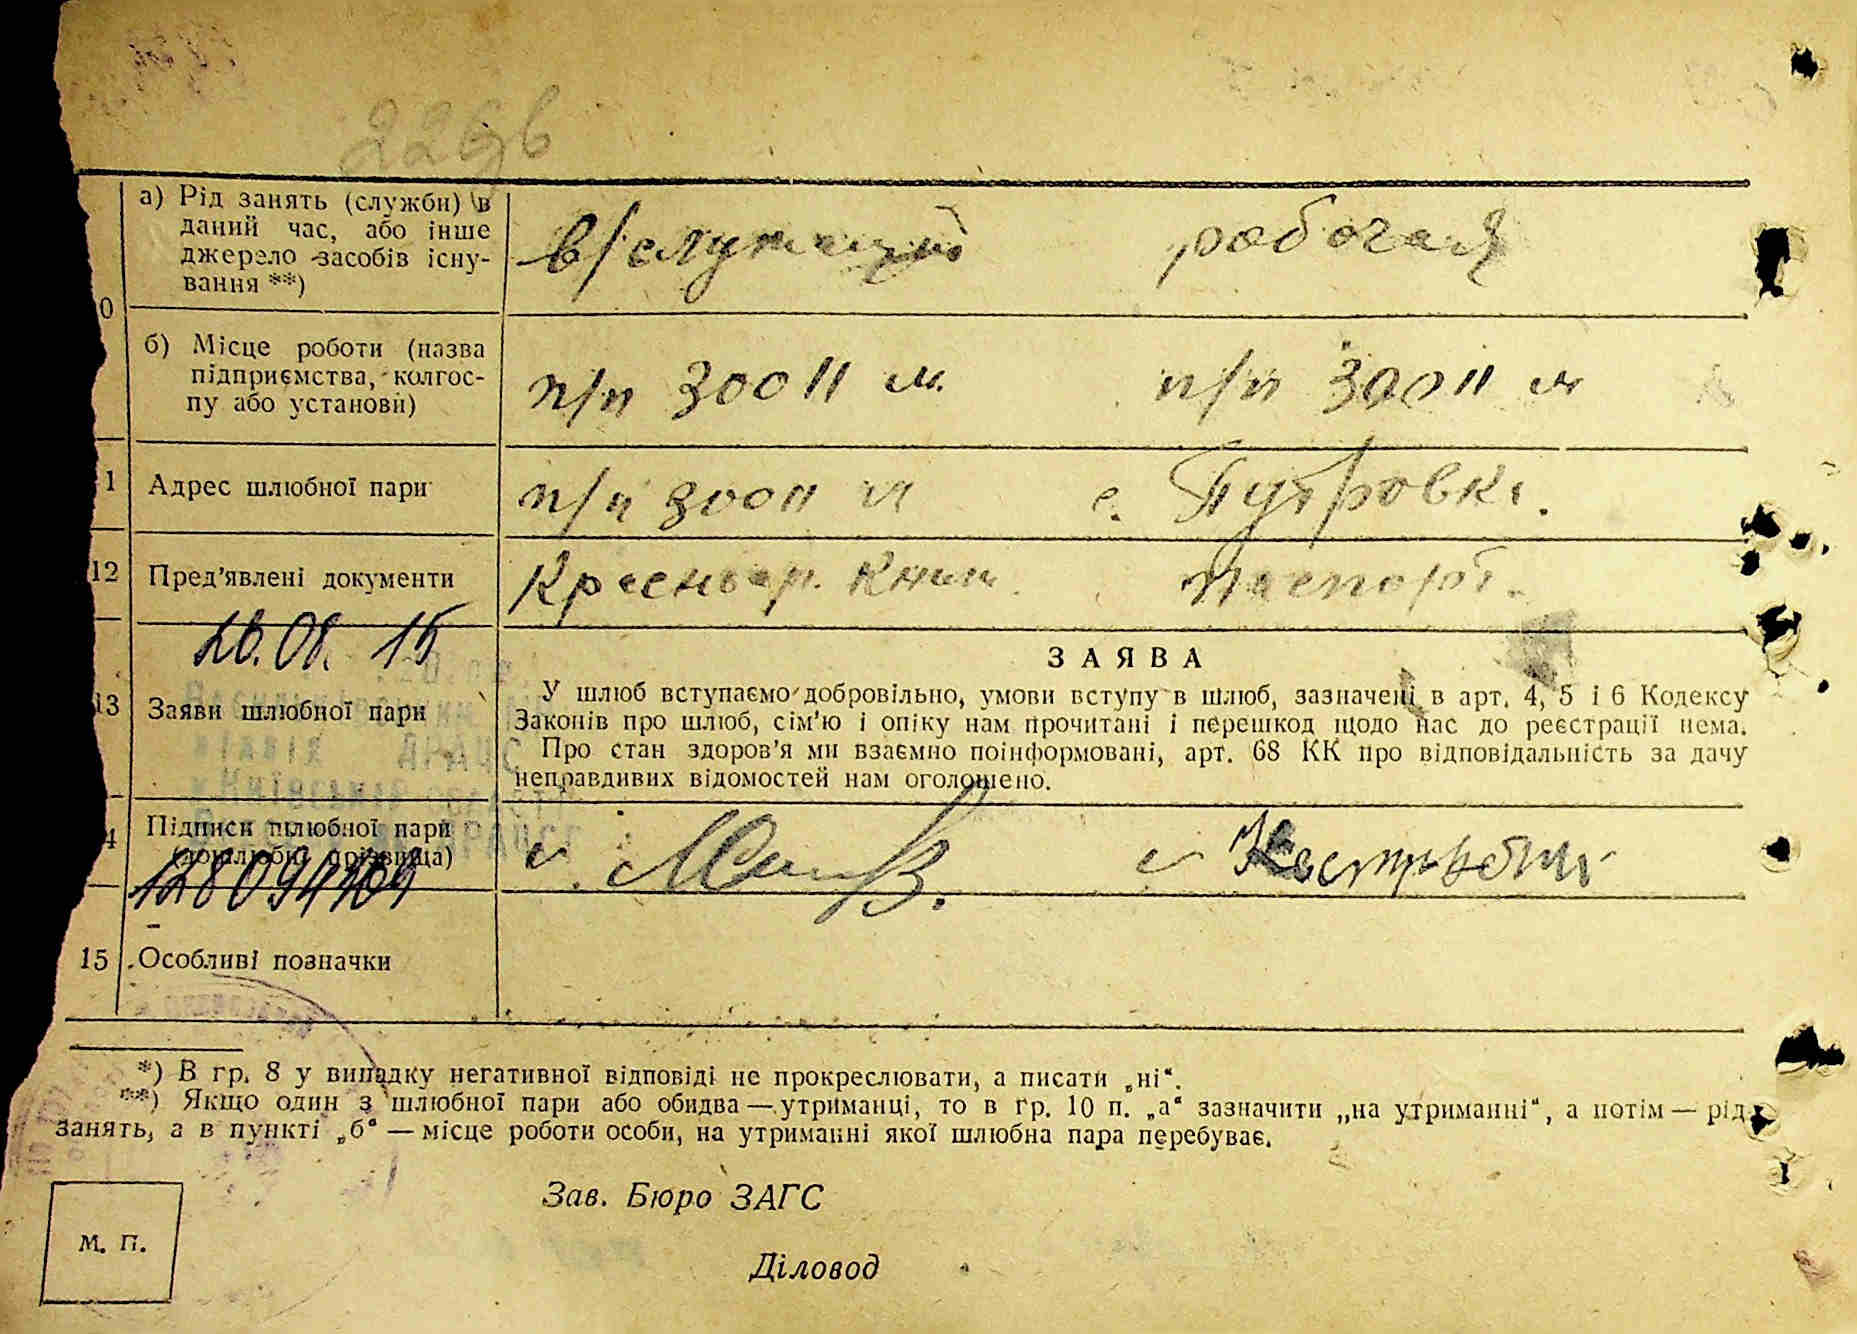 226
а) Рід занять (служби) в
даний час, або інше
джерело засобів існу-
вання **)
в/служащий
рабочая
0
б) Місце роботи (назва
підприємства, колгос-
пу або установи)
п/п 30011 м
п/п 30011 м
1
Адрес шлюбної пари
п/п 30011 м
с. Путровка.
12
Пред'явлені документи
Красноар. Книж.
Паспорт.
20.08. 15
13
Заяви шлюбної пари
ЗАЯВА
У шлюб вступаємо добровільно, умови вступу в шлюб, зазначені в арт. 4, 5 і 6 Кодексу
Законів про шлюб, сім'ю і опіку нам прочитані і перешкод щодо нас до реєстрації нема.
Про стан здоров'я ми взаємно поінформовані, арт. 68 КК про відповідальність за дачу
неправдивих відомостей нам оголошено.
4
Підписи шлюбної пари
(дошлюбні прізвища)
15
Особливі позначки
*) В гр. 8 у випадку негативної відповіді не прокреслювати, а писати „ні“.
**) Якщо один з шлюбної пари або обидва — утриманці, то в гр. 10 п. „а“ зазначити „на утриманні“, а потім — рід
занять, а в пункті „б“ — місце роботи особи, на утриманні якої шлюбна пара перебуває.
Зав. Бюро ЗАГС
М. П.
Діловод